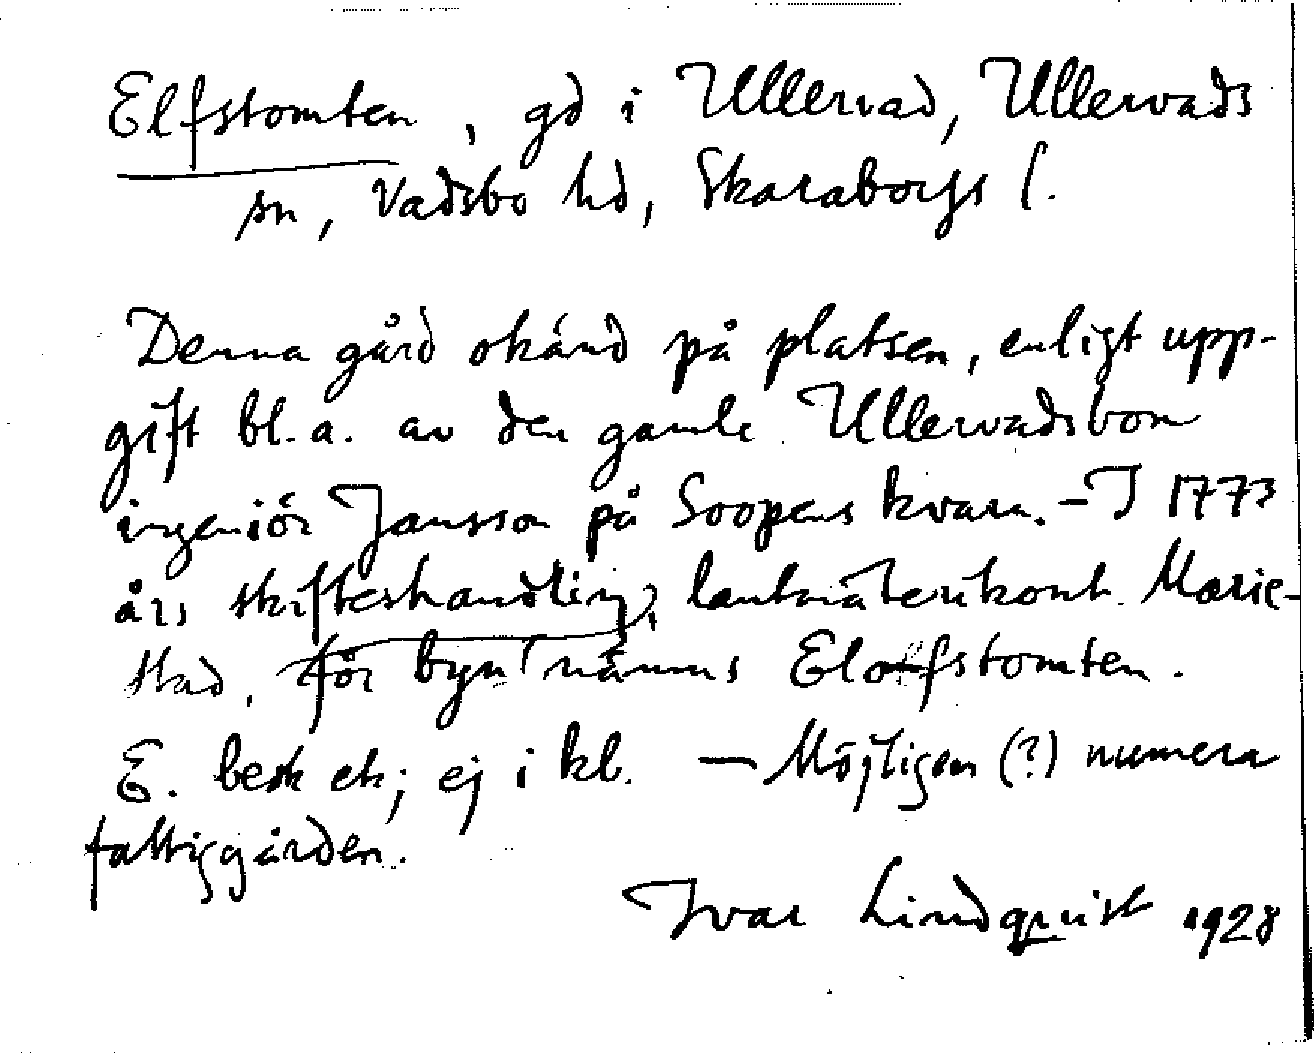 Elfstomten, gd i Ullervad, Ullervads
sn, Vadsbo hd, Skaraborgs l.
Denna gård okänd på platsen, enligt upp-
gift bl. a. av den gamle Ullervadsbon
ingeniör Jansson på Soopens kvarn. – I 1773
års skifteshandling, lantmäterikont. Marie-
stad, för byn nämns Elofstomten.
E. besk ek; ej i kb. — Möjligen (?) numera
fattiggården.
Ivar Lindquist 1928